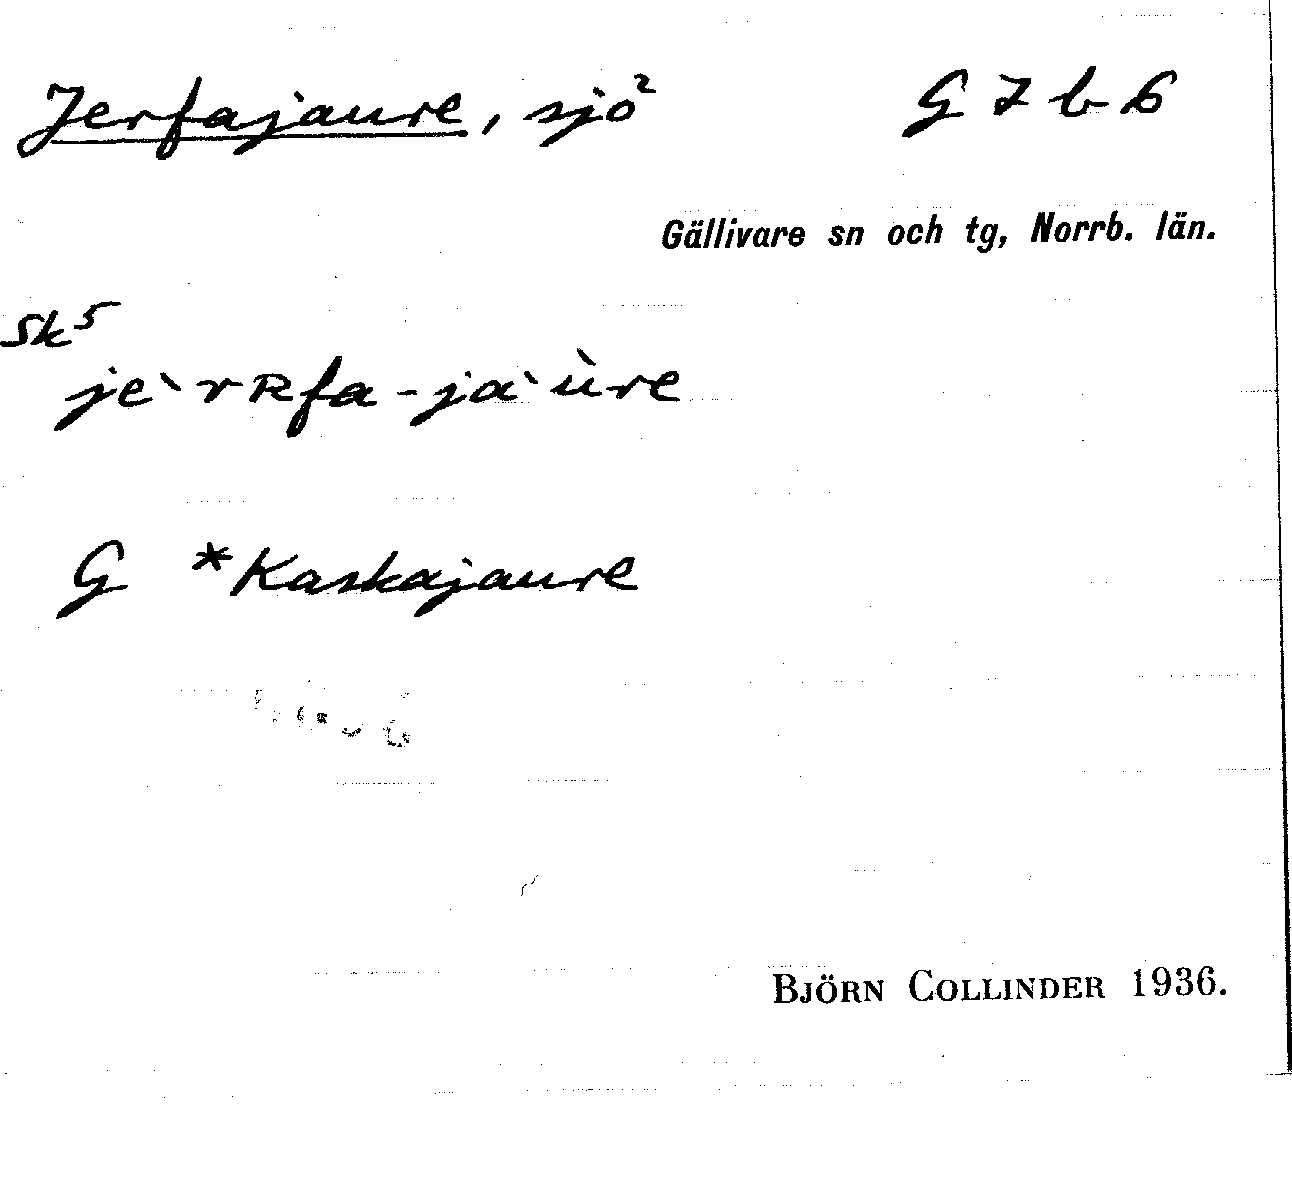 Jerfajaure, sjö² G 7 b 6
Gällivare sn och tg, Norrb. län.
Sk⁵
je`rRfa-ja`ùre
G *Kaskajaure
BJÖRN COLLINDER 1936.